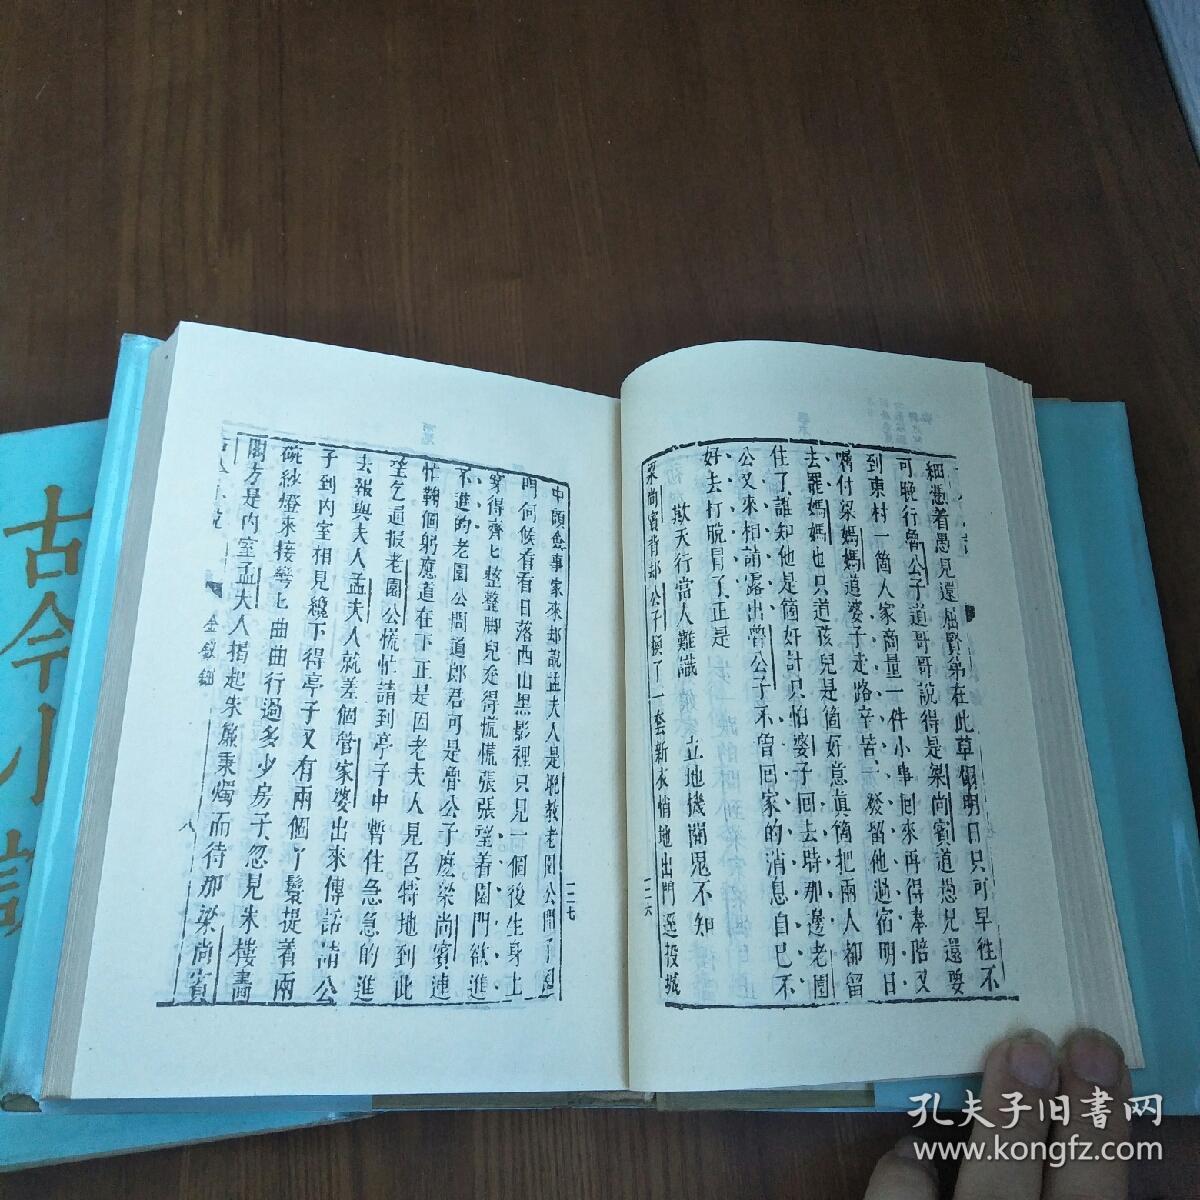 細憑着愚見還屈賢弟在此草榻明日只可早徃不
可晚行魯公子道哥哥說得是梁尚賓道愚兄還要
到東村一個人家商量一件小事回來再得奉陪又
囑付梁媽媽道婆子走路辛苦一發留他過宿明日
去罷媽媽也只道孩兒是箇好意真箇把兩人都留
住了誰知他是箇奸計只怕婆子回去時那邊老園
公又來相請露出魯公子不曾回家的消息自己不
好去打脫冐了正是
欺天行當人難識 立地機關鬼不知
梁尚賓背却公子換了一套新衣悄地出門逕投城
一二六
中顧僉事家來却說孟夫人是晚教老園公開了園
一二七
門伺候看看日落西山黑影裡只見一個後生身上
穿得齊匕整整脚兒走得慌慌張張望着園門欲進
不進的老園公問道郎君可是魯公子麽梁尚賓連
忙鞠個躬應道在下正是因老夫人見召特地到此
望乞通報老園公慌忙請到亭子中暫住急急的進
去報與夫人孟夫人就差個管家婆出來傳話請公
子到內室相見纔下得亭子又有兩個丫鬟提着兩
碗紗燈來接彎匕曲曲行過多少房子忽見朱樓畵
閣方是內室孟夫人揭起朱簾秉燭而待那梁尚賓
金釵鈿
八
古今小說
孔夫子旧書网
www.kongfz.com